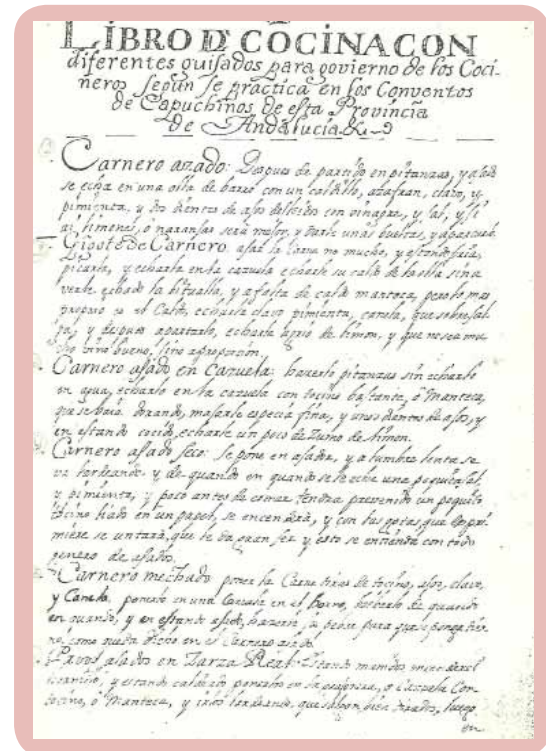 LIBRO DE COCINA CON
diferentes guisados para govierno de los Coci-
neros segun se practica en los Conventos
de Capuchinos de esta Provincia
de Andalucia &
Carnero azado: Despues de partido en pitanzas, y
se echa en una olla de barro con un caldillo, azafran, clavo, y
pimienta, y dos dientes de ajos desleidos con vinagre, y sal, y si
ai limones, o naranjas sera mejor, y darle unas bueltas, y apartarlo
Gigote de Carnero: asar la Carne no mucho, y estando fria,
picarla, y echarla en la cazuela echarle su caldo de la olla sin a
verle echado la vitualla, y a falta de caldo manteca, pero lo mas
propio es el Caldo, echarle clavo pimienta, canela, que sobresal-
ga, y despues apartarlo, echarle agrio de limon, y que no sea mu-
cho sino bueno, sino a proporcion.
Carnero asado en Cazuela: hacerlo pitanzas sin echarlo
en agua, echarlo en la cazuela con tocino bastante, o Manteca,
que se vaia dorando, majarle especia fina, y unos dientes de ajos, y
en estando cocido, echarle un poco de zumo de limon.
Carnero asado seco: Se pone en asador, y a lumbre lenta se
va lardeando y de quando en quando se le eche una poquita sal,
y pimienta, y poco antes de comer tendra prevenido un poquito
tocino liado en un papel, se encendera, y con las gotas, que expri-
miere se untara, que le da gran ser y esto se entienda con todo
genero de asados.
Carnero mechado: poner la Carne tiras de tocino, ajos, clavo,
y Canela, ponerlo en una Cazuela en el horno, de quando
en quando, y en estando asado, para que se ponga tier-
no, como queda dicho en el Carnero asado.
Pavos asados en Zarza Real: Estando
y estando ponerlos en la o Cazuela Con
tocino, o Manteca, y irlos lardeando, que salgan bien dorados, luego
en